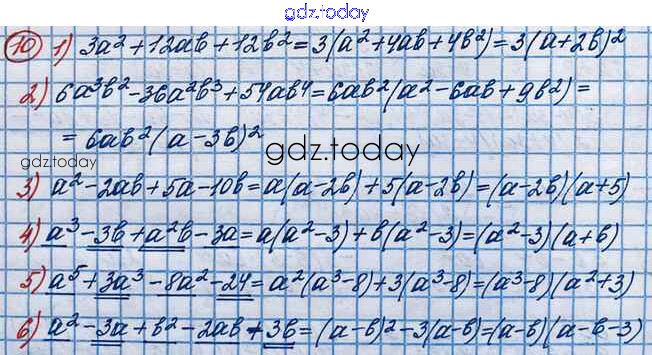 gdz.today
10 1) 3a²+12ab+12b²=3(a²+4ab+4b²)=3(a+2b)²
2) 6a³b²-36a²b³+54ab⁴=6ab²(a²-6ab+9b²)=
=6ab²(a-3b)²
gdz.today
gdz.today
3) a²-2ab+5a-10b=a(a-2b)+5(a-2b)=(a-2b)(a+5)
4) a³-3b+a²b-3a=a(a²-3)+b(a²-3)=(a²-3)(a+b)
5) a⁵+3a³-8a²-24=a²(a³-8)+3(a³-8)=(a³-8)(a²+3)
6) a²-3a+b²-2ab+3b=(a-b)²-3(a-b)=(a-b)(a-b-3)